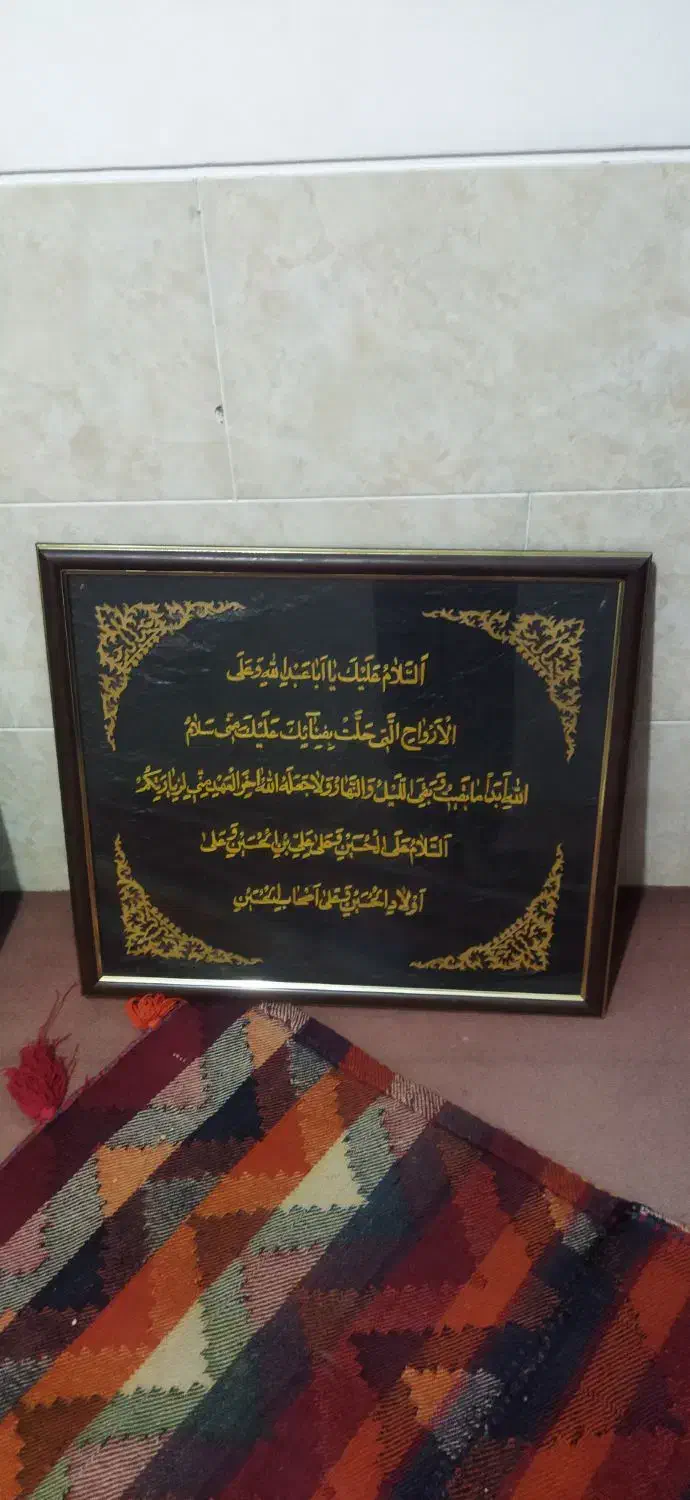 اَلسَّلامُ عَلَیْكَ یٰا اَبا عَبْدِ اللهِ وَ عَلَی
الْاَرْواحِ الَّتی حَلَّتْ بِفِنآئِكَ عَلَیْكَ مِنّی سَلامُ
اللهِ اَبَداً مابَقیتُ وَ بَقِیَ اللَّیْلُ وَ النَّهارُ وَ لا جَعَلَهُ اللهُ اخِرَ الْعَهْدِ مِنّی لِزِیارَتِکُمْ
اَلسَّلامُ عَلَی الْحُسَیْنِ وَ عَلی عَلِیِّ بْنِ الْحُسَیْنِ وَ عَلی
اَوْلادِ الْحُسَیْنِ وَ عَلی اَصْحابِ الْحُسَیْنِ